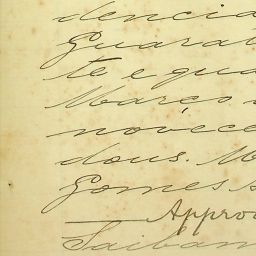 dencia
Guarat
te e qua
Março
novece
dous. M
Gomes
Approv
Saiban